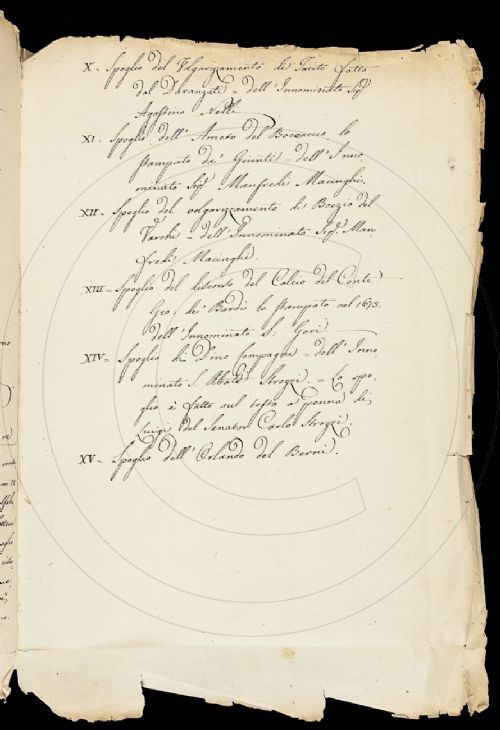 X. Spoglio del Volgarizzamento di Tacito fatto
dal Davanzati = dell'Innominato Sigr.
Agostino Nelli
XI. Spoglio dell'Ameto del Boccaccio lo
stampato da' Giunti = dell'Inno-
minato Sigr. Manfredi Macinghi.
XII = Spoglio del volgarizzamento di Boezio del
Varchi = dell'Innominato Sigr. Man
fredi Macinghi.
XIII = Spoglio del discorso del Calcio del Conte
Gio. de' Bardi lo stampato nel 1673.
dell'Innominato S. Gori.
XIV = Spoglio di Dino Compagni = dell'Inno
minato S. Abate Strozzi. = Lo spo-
glio è fatto sul testo a penna di
Luigi del Senator Carlo Strozzi.
XV = Spoglio dell'Orlando del Berni.